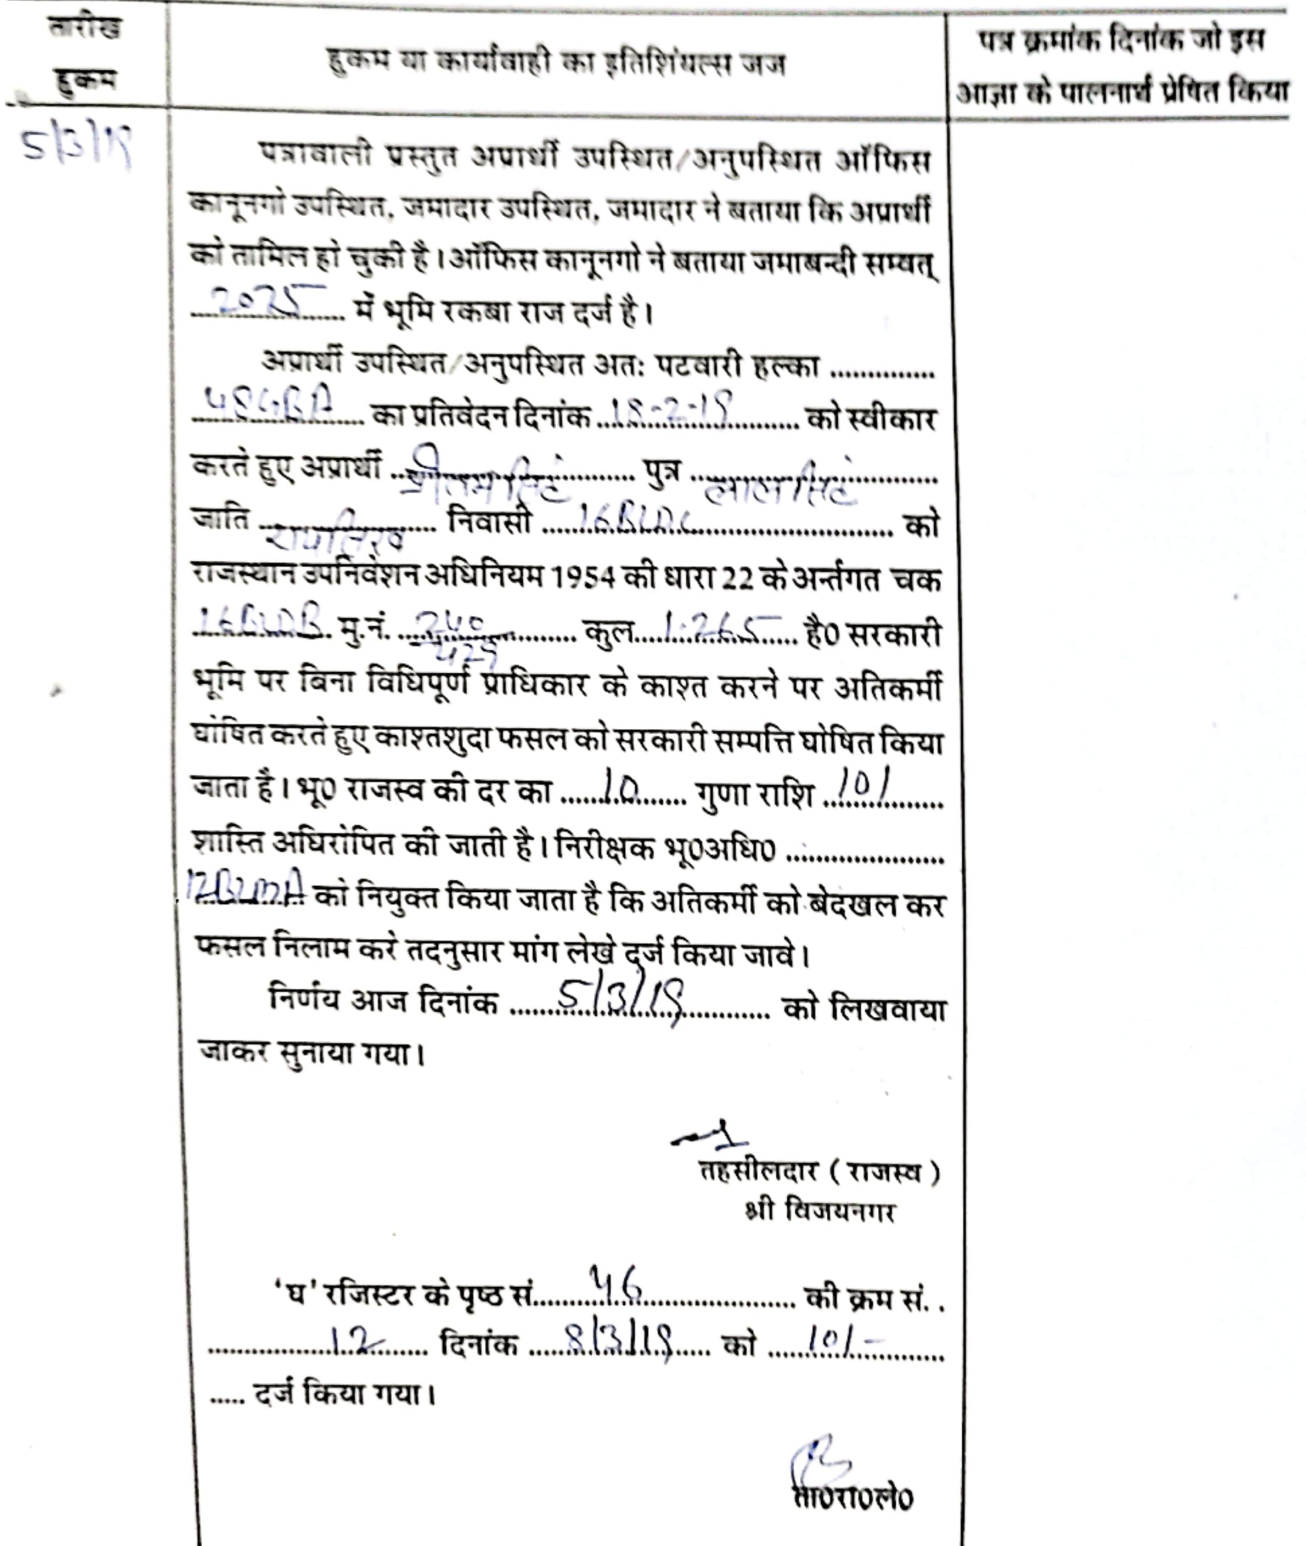 तारीख
हुकम
हुकम या कार्यावाही का इतिशिंयल्स जज
पत्र क्रमांक दिनांक जो इस
आज्ञा के पालनार्थ प्रेषित किया
5/3/19
पत्रावाली प्रस्तुत अप्रार्थी उपस्थित/अनुपस्थित ऑफिस
कानूनगो उपस्थित, जमादार उपस्थित, जमादार ने बताया कि अप्रार्थी
को तामिल हो चुकी है। ऑफिस कानूनगो ने बताया जमाबन्दी सम्वत्
2075 में भूमि रकबा राज दर्ज है।
अप्रार्थी उपस्थित/अनुपस्थित अतः पटवारी हल्का ..............
का प्रतिवेदन दिनांक 18-2-19 को स्वीकार
करते हुए अप्रार्थी प्रीतम सिंह पुत्र लाल सिंह
जाति रायसिख निवासी 16BLDC को
राजस्थान उपनिवेशन अधिनियम 1954 की धारा 22 के अर्न्तगत चक
16BLDB मु.नं. 240/429 कुल 1.265 है0 सरकारी
भूमि पर बिना विधिपूर्ण प्राधिकार के काश्त करने पर अतिकर्मी
घोषित करते हुए काश्तशुदा फसल को सरकारी सम्पत्ति घोषित किया
जाता है। भू0 राजस्व की दर का 10 गुणा राशि 101
शास्ति अधिरोपित की जाती है। निरीक्षक भू0अधि0 .....................
को नियुक्त किया जाता है कि अतिकर्मी को बेदखल कर
फसल निलाम करे तदनुसार मांग लेखे दर्ज किया जावे।
निर्णय आज दिनांक 5/3/19 को लिखवाया
जाकर सुनाया गया।
तहसीलदार ( राजस्व )
श्री विजयनगर
'घ' रजिस्टर के पृष्ठ सं. 46 की क्रम सं. .
12 दिनांक 8/3/19 को 101-
..... दर्ज किया गया।
ता0रा0ले0